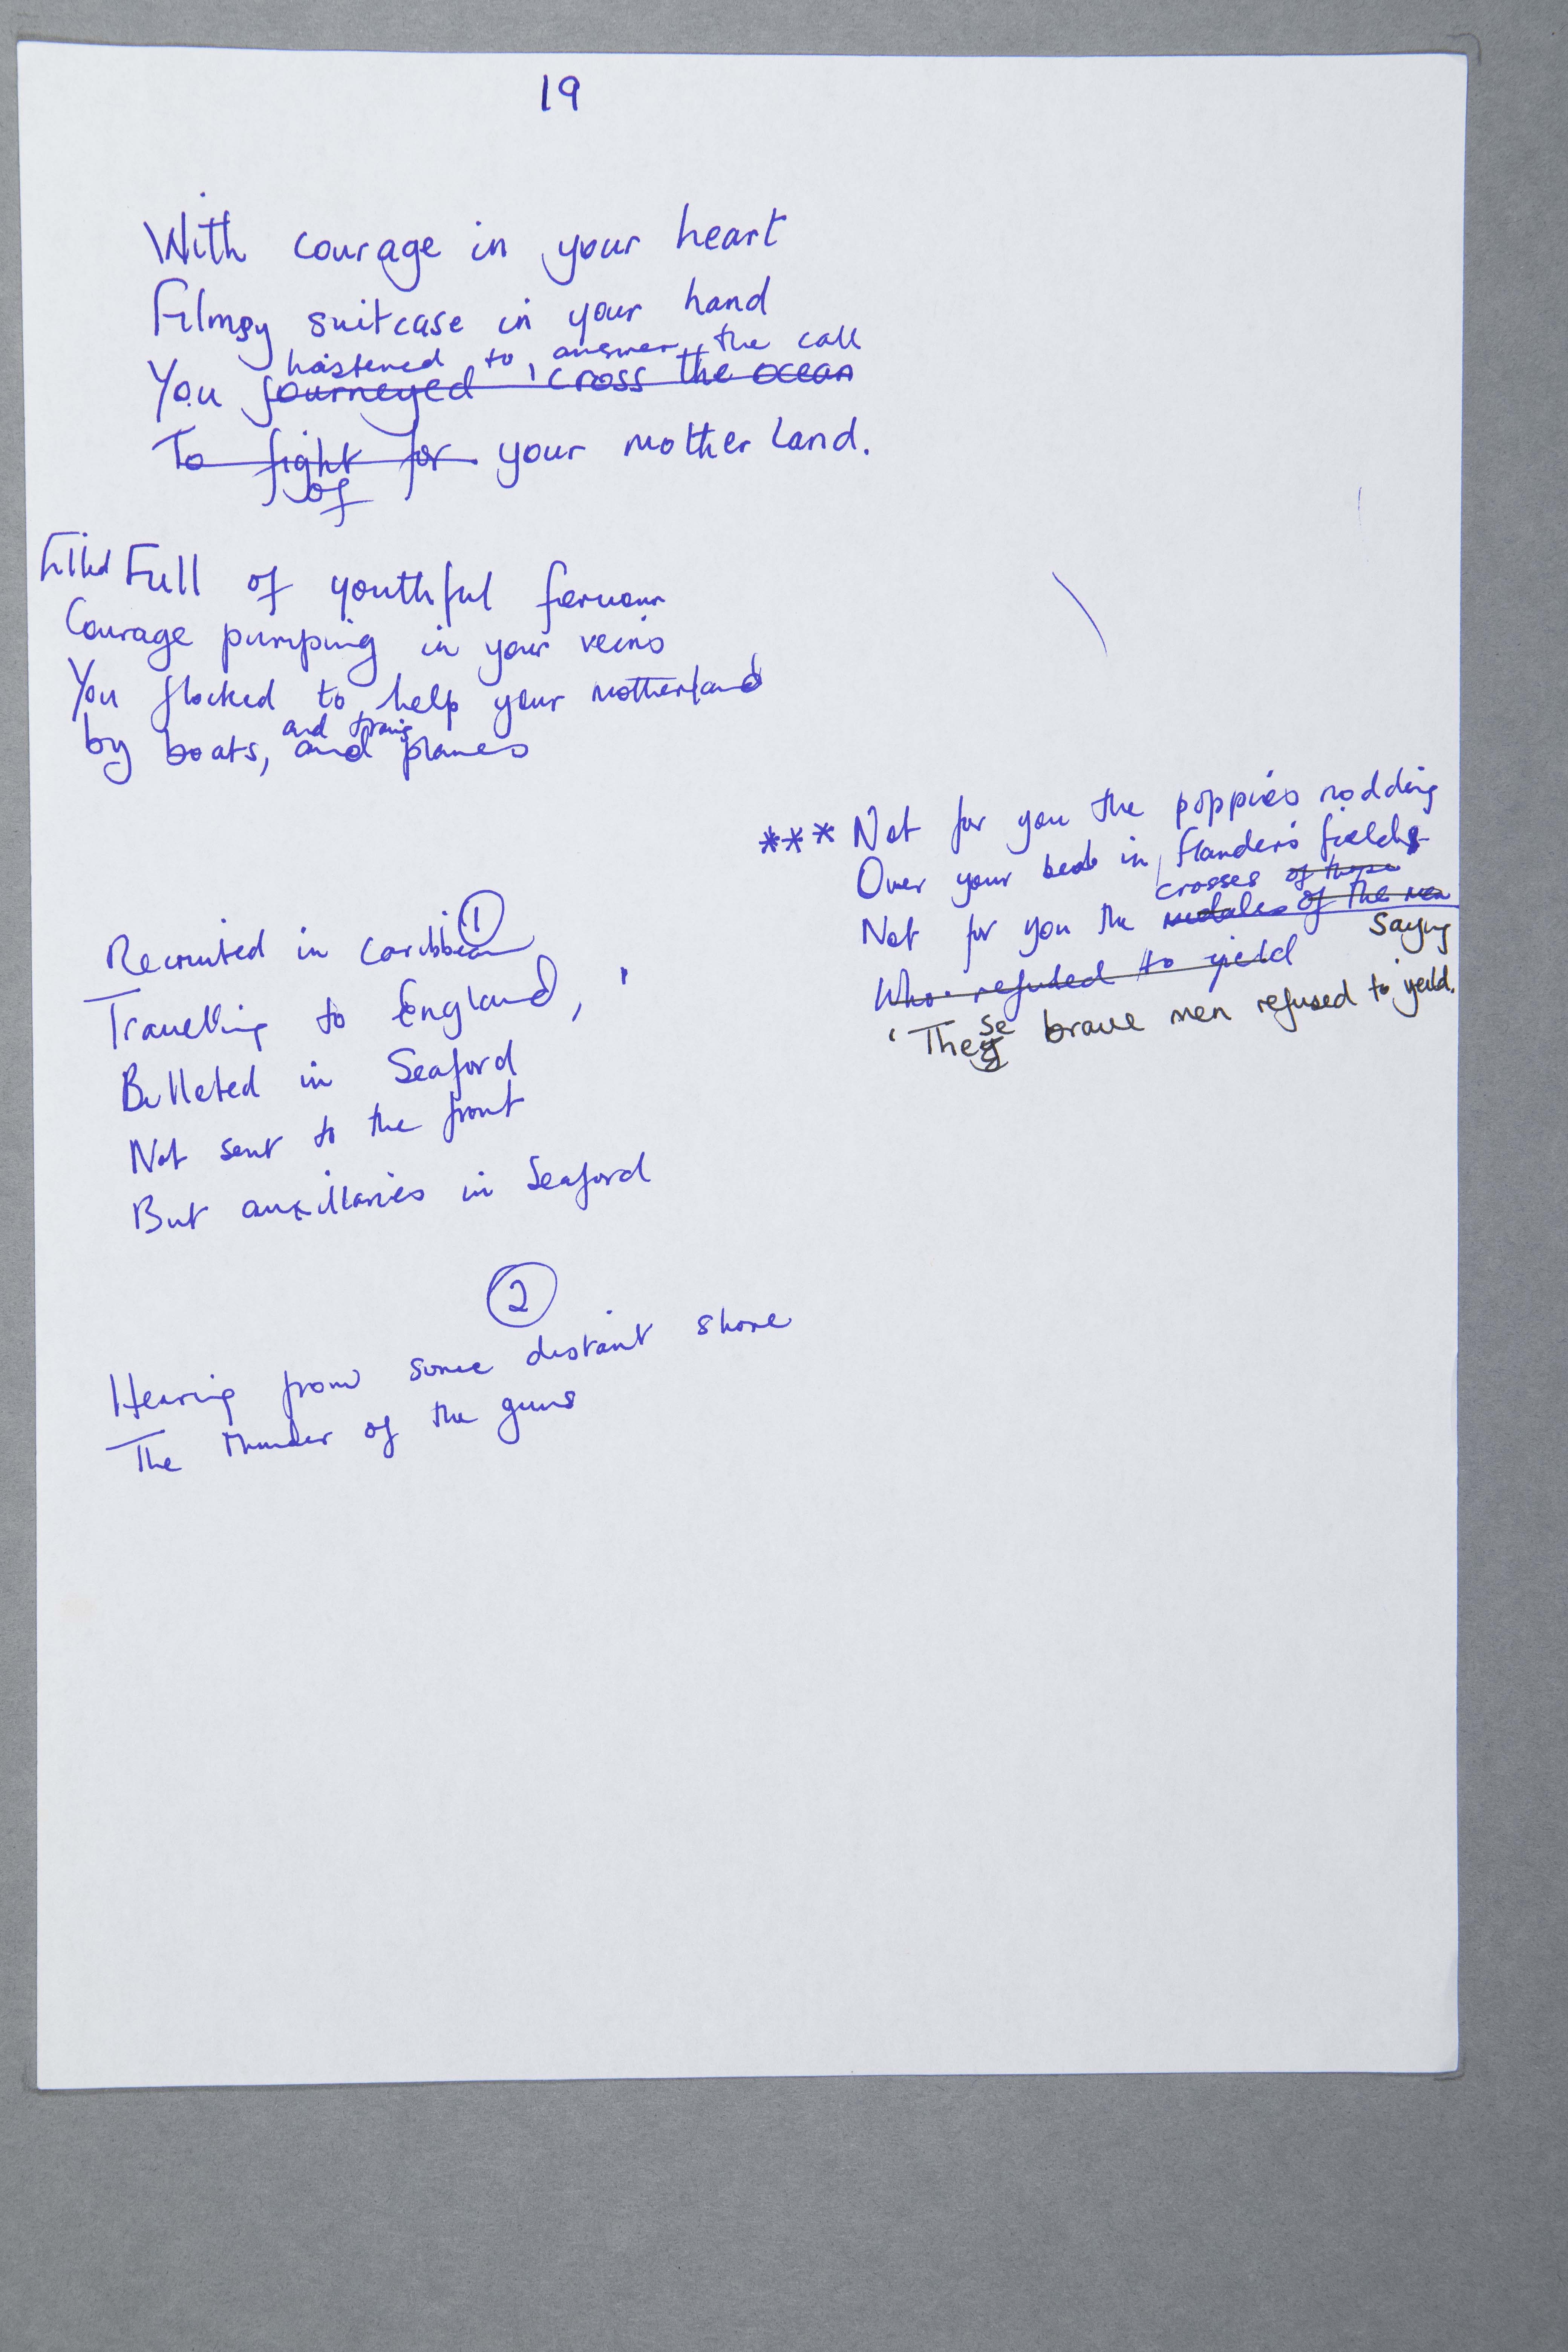 19
With courage in your heart
Filmsy suitcase in your hand
hastened to answer the call
You journeyed 'cross the ocean
To fight for your motherland.
of
Filled Full of youthful fervour
Courage pumping in your veins
You flocked to help your motherland
and trains
by boats, and planes
*** Not for you the poppies nodding
Over your beds in Flanders fields
crosses of those
Not for you the medals of the men
saying
Who refused to yield
'These brave men refused to yeild.
1
Recruited in Caribbean
Travelling to England,
Billeted in Seaford
Not sent to the front
But auxillaries in Seaford
2
Hearing from some distant shore
The thunder of the guns